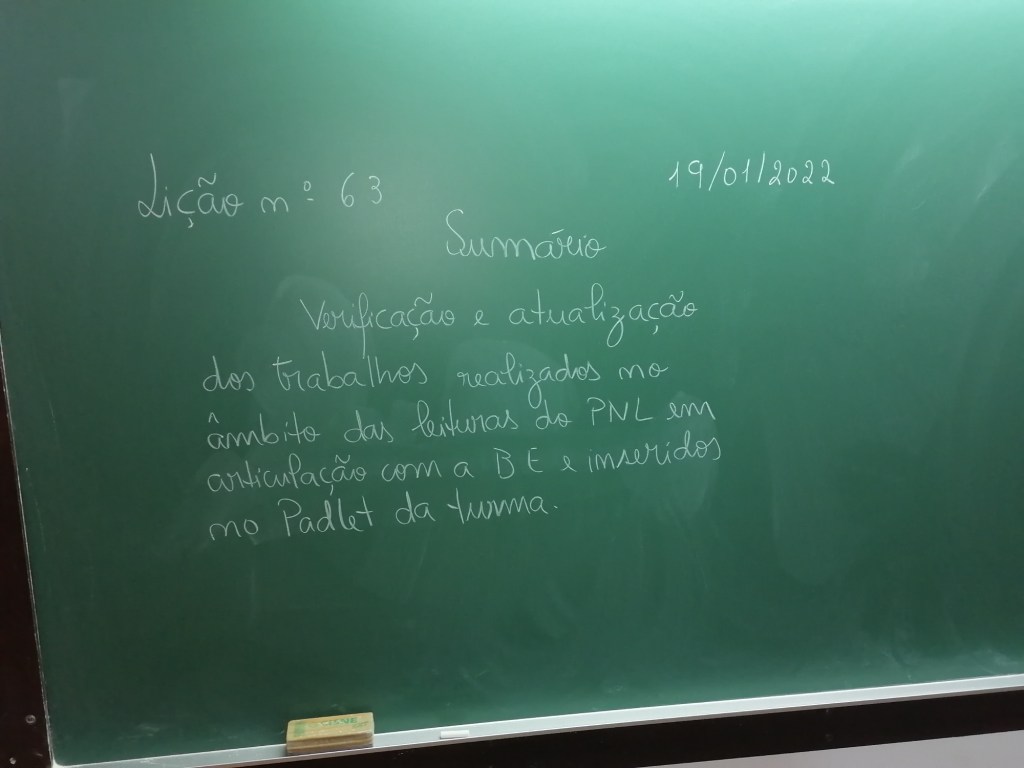 Lição nº 63 19/01/2022
Sumário
Verificação e atualização
dos trabalhos realizados no
âmbito das leituras do PNL em
articulação com a BE e inseridos
no Padlet da turma.